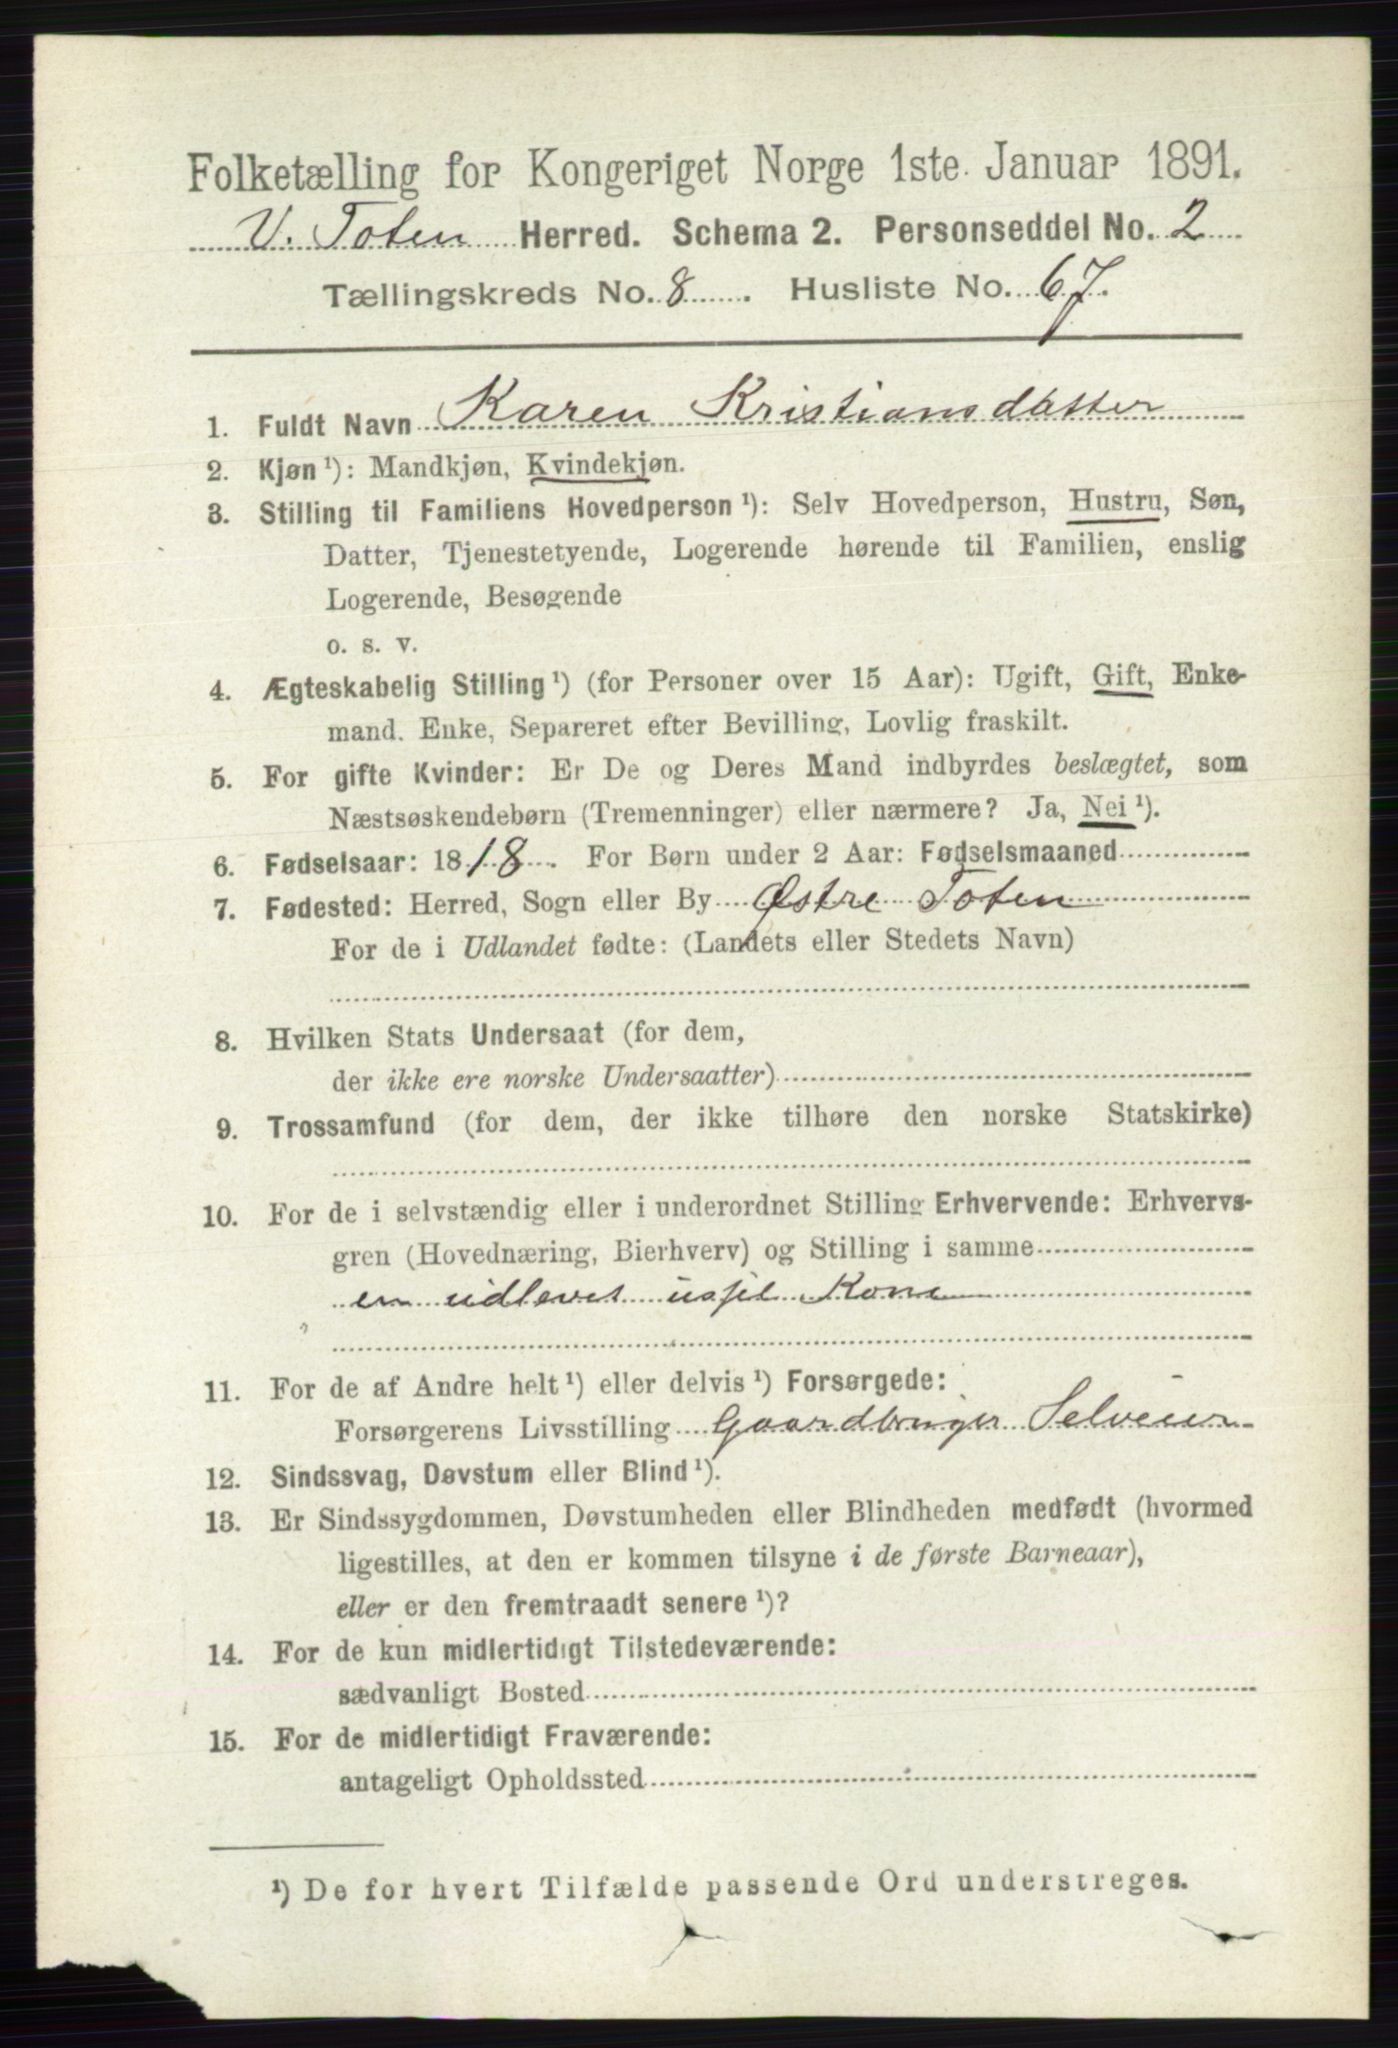 Folketælling for Kongeriget Norge 1ste Januar 1891.
V. Toten Herred. Schema 2. Personseddel No. 2
Tællingskreds No. 8. Husliste No. 67.
1. Fuldt Navn Karen Kristiansdatter
2. Kjøn ¹): Mandkjøn, Kvindekjøn.
3. Stilling til Familiens Hovedperson ¹): Selv Hovedperson, Hustru, Søn,
Datter, Tjenestetyende, Logerende hørende til Familien, enslig
Logerende, Besøgende
o. s. v.
4. Ægteskabelig Stilling ¹) (for Personer over 15 Aar): Ugift, Gift, Enke-
mand. Enke, Separeret efter Bevilling, Lovlig fraskilt.
5. For gifte Kvinder: Er De og Deres Mand indbyrdes beslægtet, som
Næstsøskendebørn (Tremenninger) eller nærmere? Ja, Nei ¹).
6. Fødselsaar: 1818. For Børn under 2 Aar: Fødselsmaaned
7. Fødested: Herred, Sogn eller By Østre Toten
For de i Udlandet fødte: (Landets eller Stedets Navn)
8. Hvilken Stats Undersaat (for dem,
der ikke ere norske Undersaatter)
9. Trossamfund (for dem, der ikke tilhøre den norske Statskirke)
10. For de i selvstændig eller i underordnet Stilling Erhvervende: Erhvervs-
gren (Hovednæring, Bierhverv) og Stilling i samme
en udlevet ussel Kone
11. For de af Andre helt ¹) eller delvis ¹) Forsørgede:
Forsørgerens Livsstilling Gaardbruger Selveier
12. Sindssvag, Døvstum eller Blind ¹).
13. Er Sindssygdommen, Døvstumheden eller Blindheden medfødt (hvormed
ligestilles, at den er kommen tilsyne i de første Barneaar),
eller er den fremtraadt senere ¹)?
14. For de kun midlertidigt Tilstedeværende:
sædvanligt Bosted
15. For de midlertidigt Fraværende:
antageligt Opholdssted
¹) De for hvert Tilfælde passende Ord understreges.